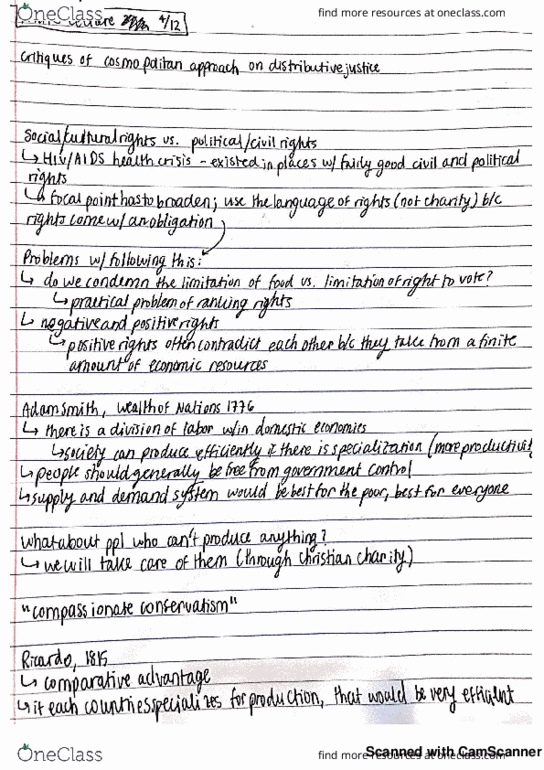 OneClass
find more resources at oneclass.com
4/12
critiques of cosmopolitan approach on distributive justice
social/cultural rights vs. political/civil rights
↳ HIV/AIDS health crisis - existed in places w/ fairly good civil and political
rights
↳ focal point has to broaden; use the language of rights (not charity) b/c
rights come w/ an obligation
Problems w/ following this:
↳ do we condemn the limitation of food vs. limitation of right to vote?
↳ practical problem of ranking rights
↳ negative and positive rights
↳ positive rights often contradict each other b/c they take from a finite
amount of economic resources
Adam Smith, Wealth of Nations 1776
↳ there is a division of labor w/in domestic economies
↳ society can produce efficiently if there is specialization (more productivit
↳ people should generally be free from government control
↳ supply and demand system would be best for the poor, best for everyone
what about ppl who can't produce anything?
↳ we will take care of them (through Christian charity)
"compassionate conservatism"
Ricardo, 1815
↳ comparative advantage
↳ if each country specializes for production, that would be very efficient
OneClass
find more resources at oneclass.com
Scanned with CamScanner